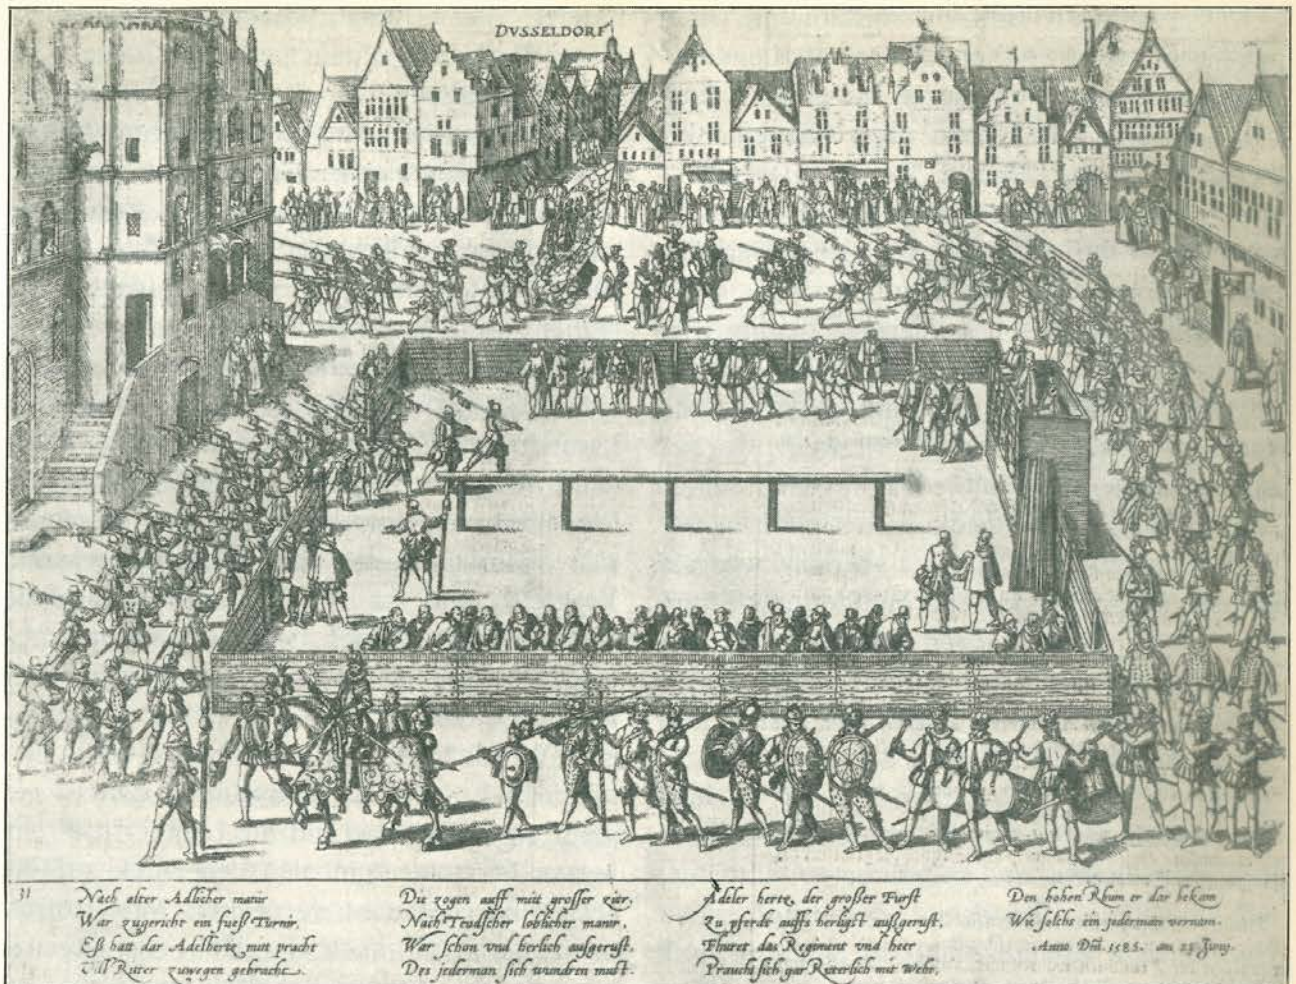 DVSSELDORF
31
Nach alter Adlicher manir
War zugericht ein fueß Turnir,
Eß hatt dar Adelhertz mitt pracht
Vill Ritter zuwegen gebracht.
Die zogen auff mit grosser zier,
Nach Teudscher loblicher manir,
War schon vnd herlich aufgerust,
Des jederman sich wundren must.
Adeler hertz, der großer Furst
Zu pferde auffs herligst außgerust,
Fhuret das Regiment vnd heer
Praucht sich gar Ritterlich mit wehr,
Den hohen Rhum er dar bekam
Wie solchs ein jederman vernam.
Anno Dni. 1585. am 25 Junij.